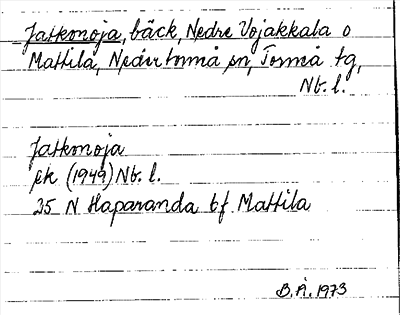 Jatkonoja, bäck, Nedre Vojakkala o
Mattila, Nedertorneå sn, Torneå tg,
Nb. l.
Jatkonoja
ek (1949) Nb. l.
25 N Haparanda bf Mattila
B.Å. 1973